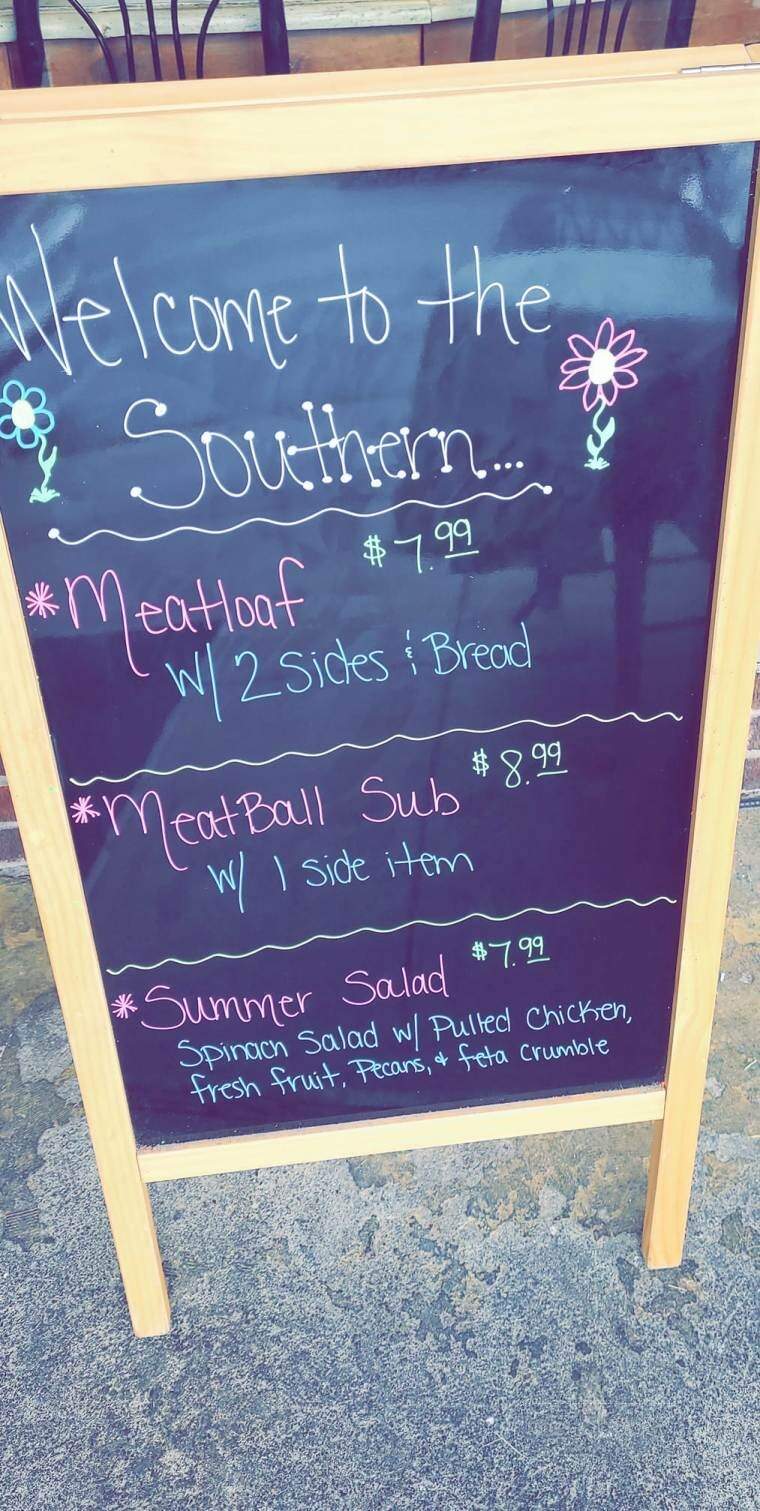 Welcome to the
Southern...
$7.99
*Meatloaf
w/ 2 Sides & Bread
$8.99
*MeatBall Sub
w/ 1 side item
$7.99
*Summer Salad
Spinach Salad w/ Pulled Chicken,
fresh fruit, Pecans, & feta crumble